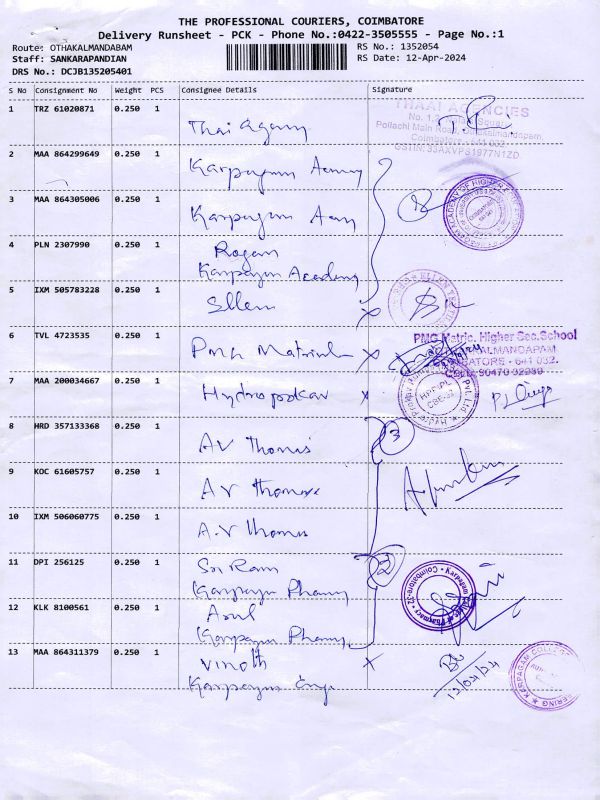 THE PROFESSIONAL COURIERS, COIMBATORE
Delivery Runsheet - PCK - Phone No.:0422-3505555 - Page No.:1
Route: OTHAKALMANDABAM
RS No.: 1352054
Staff: SANKARAPANDIAN
RS Date: 12-Apr-2024
DRS No.: DCJB135205401
S No Consignment No Weight PCS Consignee Details Signature
1 TRZ 61020871 0.250 1 Thai Agency
THAAI AGENCIES
Pollachi Main Road, Othakalmandapam,
Coimbatore - 641 032.
GSTIN:33AXVPS1977N1ZD
2 MAA 864299649 0.250 1 Karpagam
3 MAA 864305006 0.250 1 Karpagam
4 PLN 2307990 0.250 1
Karpagam Academy
5 IXM 505783228 0.250 1 Ellen
6 TVL 4723535 0.250 1 PMG
PMG Matric. Higher Sec.School
7 MAA 200034667 0.250 1
HPPIPL
CBE-32
8 HRD 357133368 0.250 1 AV Thomas
3
9 KOC 61605757 0.250 1 AV Thomas
10 IXM 506060775 0.250 1 A.V Thomas
11 DPI 256125 0.250 1 Sri Ram
Karpagam Pharmacy
2
12 KLK 8100561 0.250 1 Arul
Karpagam Pharmacy
Karpagam College of Pharmacy • Coimbatore-32
13 MAA 864311379 0.250 1 Vinoth
Karpagam Eng